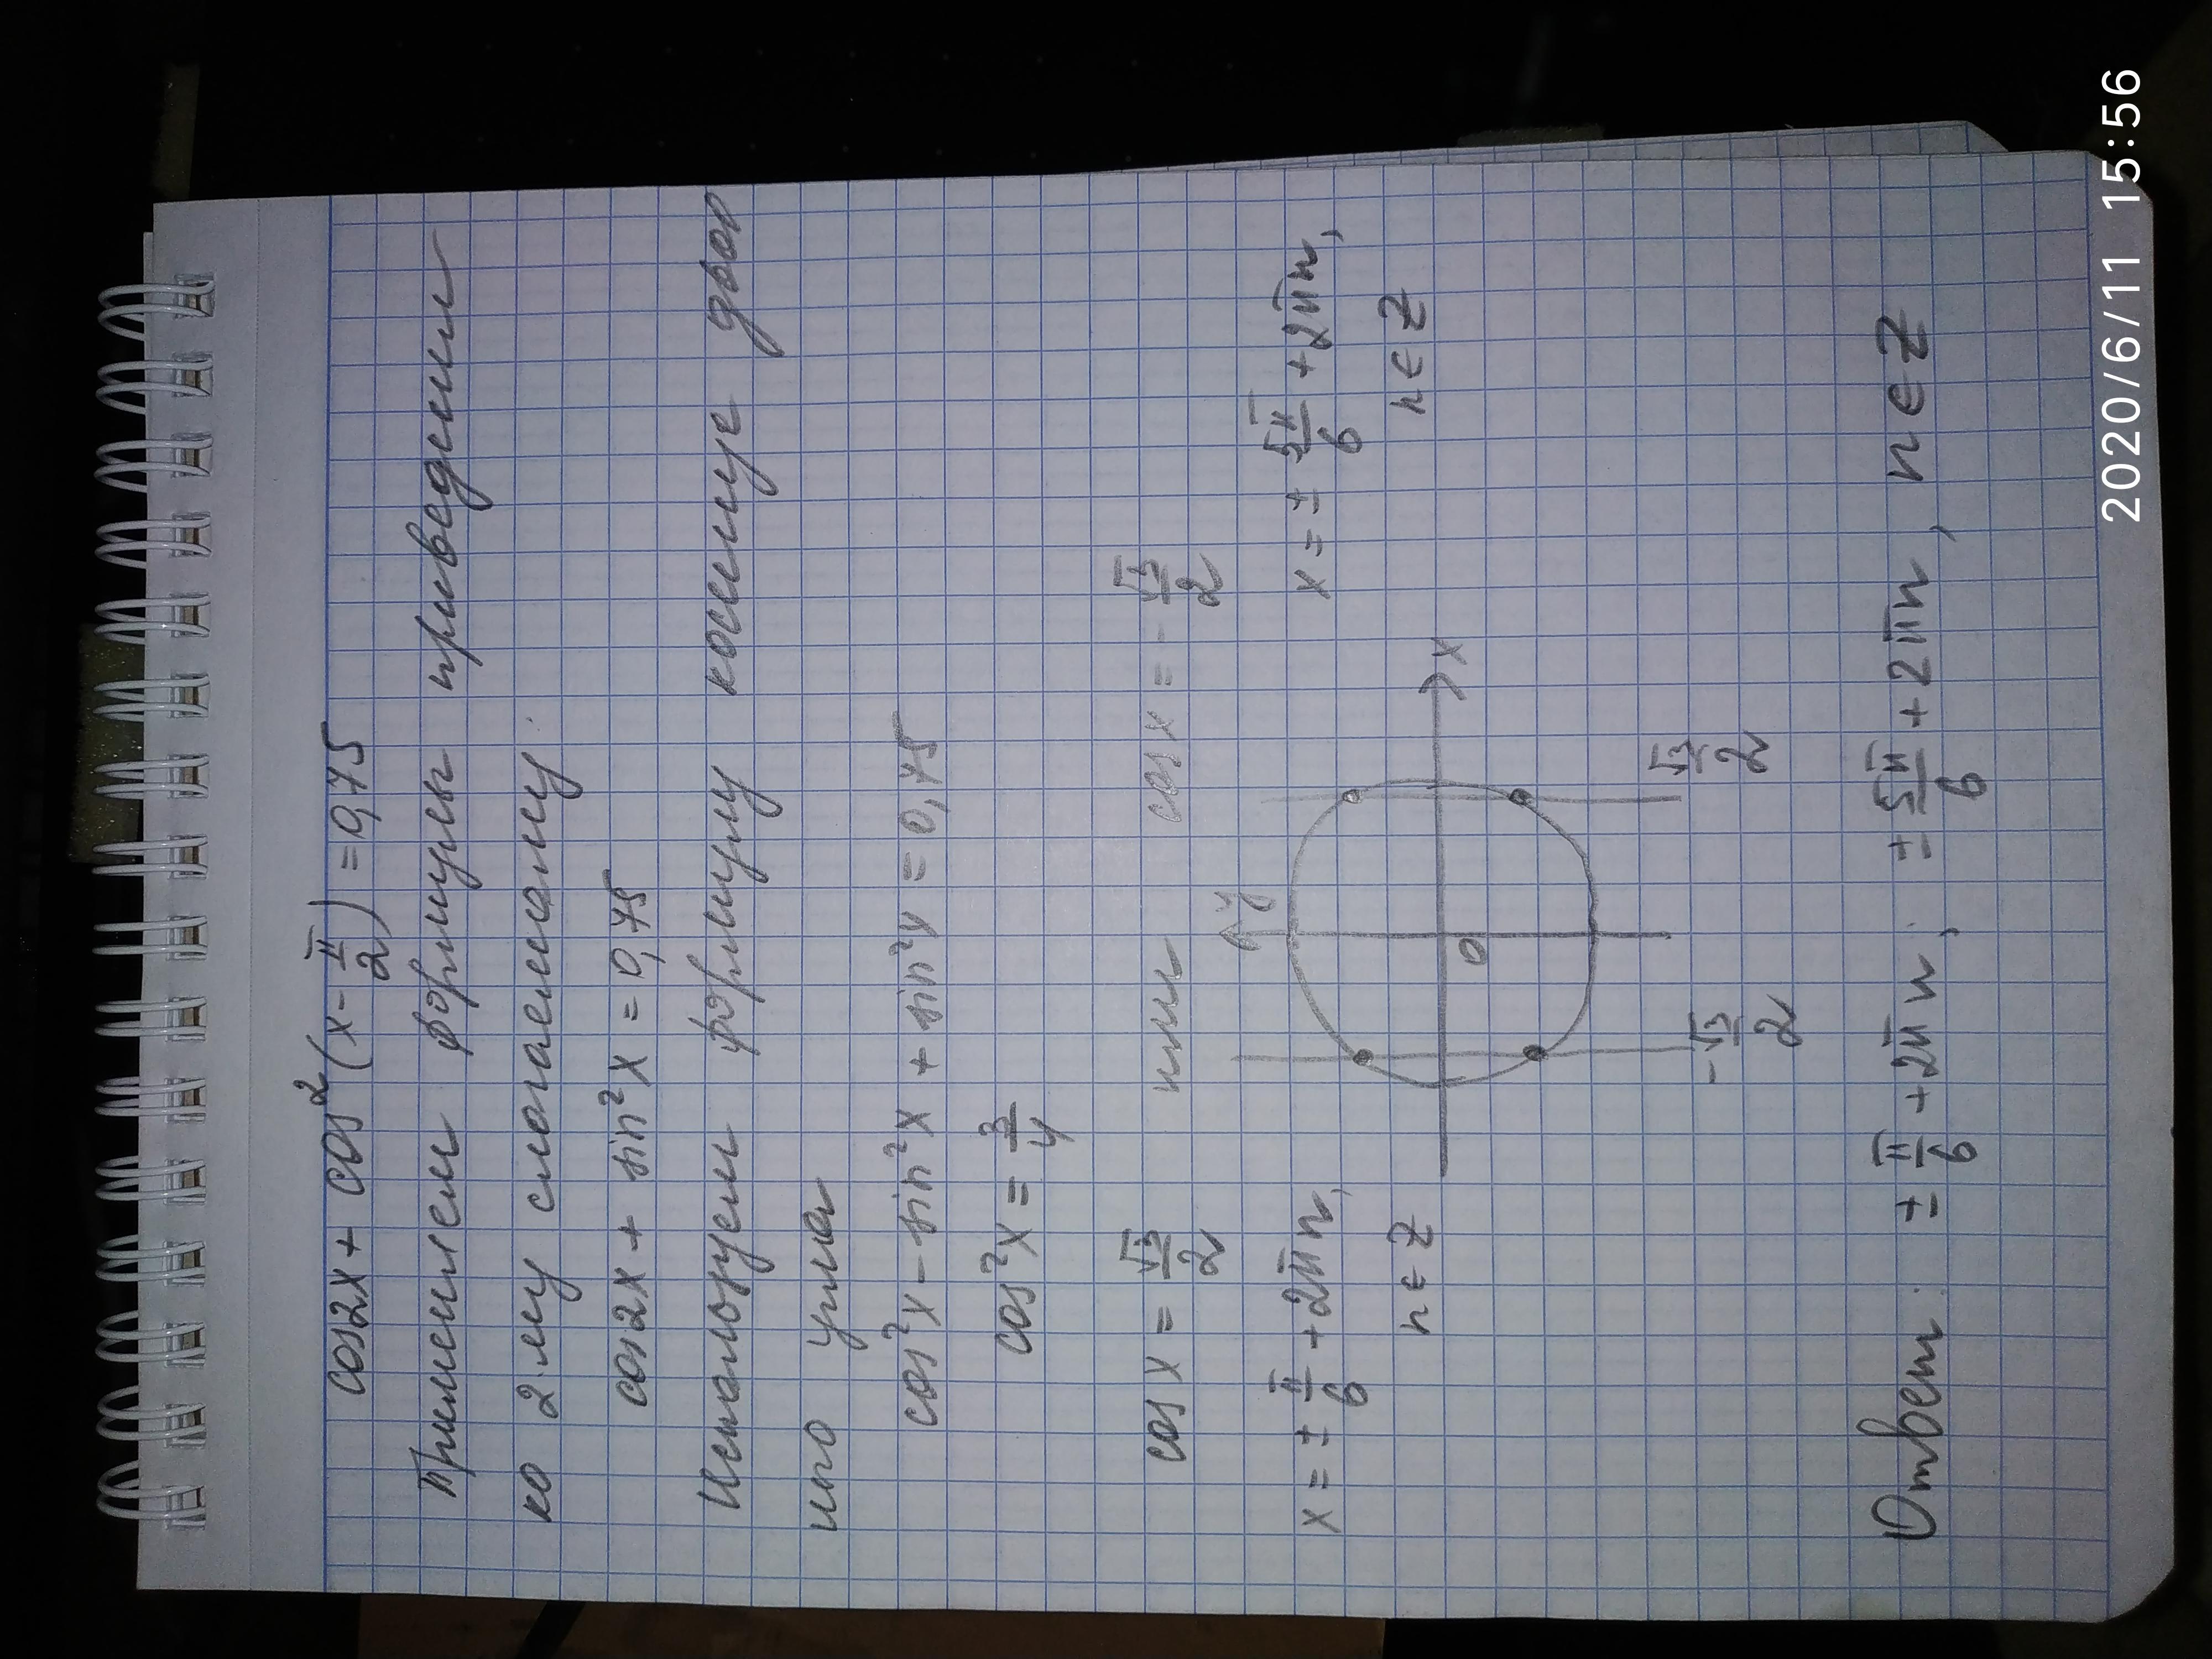 cos2x + cos²(x - π/2) = 0,75
Применяем формулы приведения
ко 2 му слагаемому:
cos2x + sin²x = 0,75
Используем формулу косинуса двой
ного угла
cos²x - sin²x + sin²x = 0,75
cos²x = 3/4
cos x = √3/2 или cos x = -√3/2
x = ± π/6 + 2πn, x = ± 5π/6 + 2πn,
n ∈ Z n ∈ Z
y
x
0
-√3/2 √3/2
Ответ: ± π/6 + 2πn; ± 5π/6 + 2πn, n ∈ Z
2020/6/11 15:56